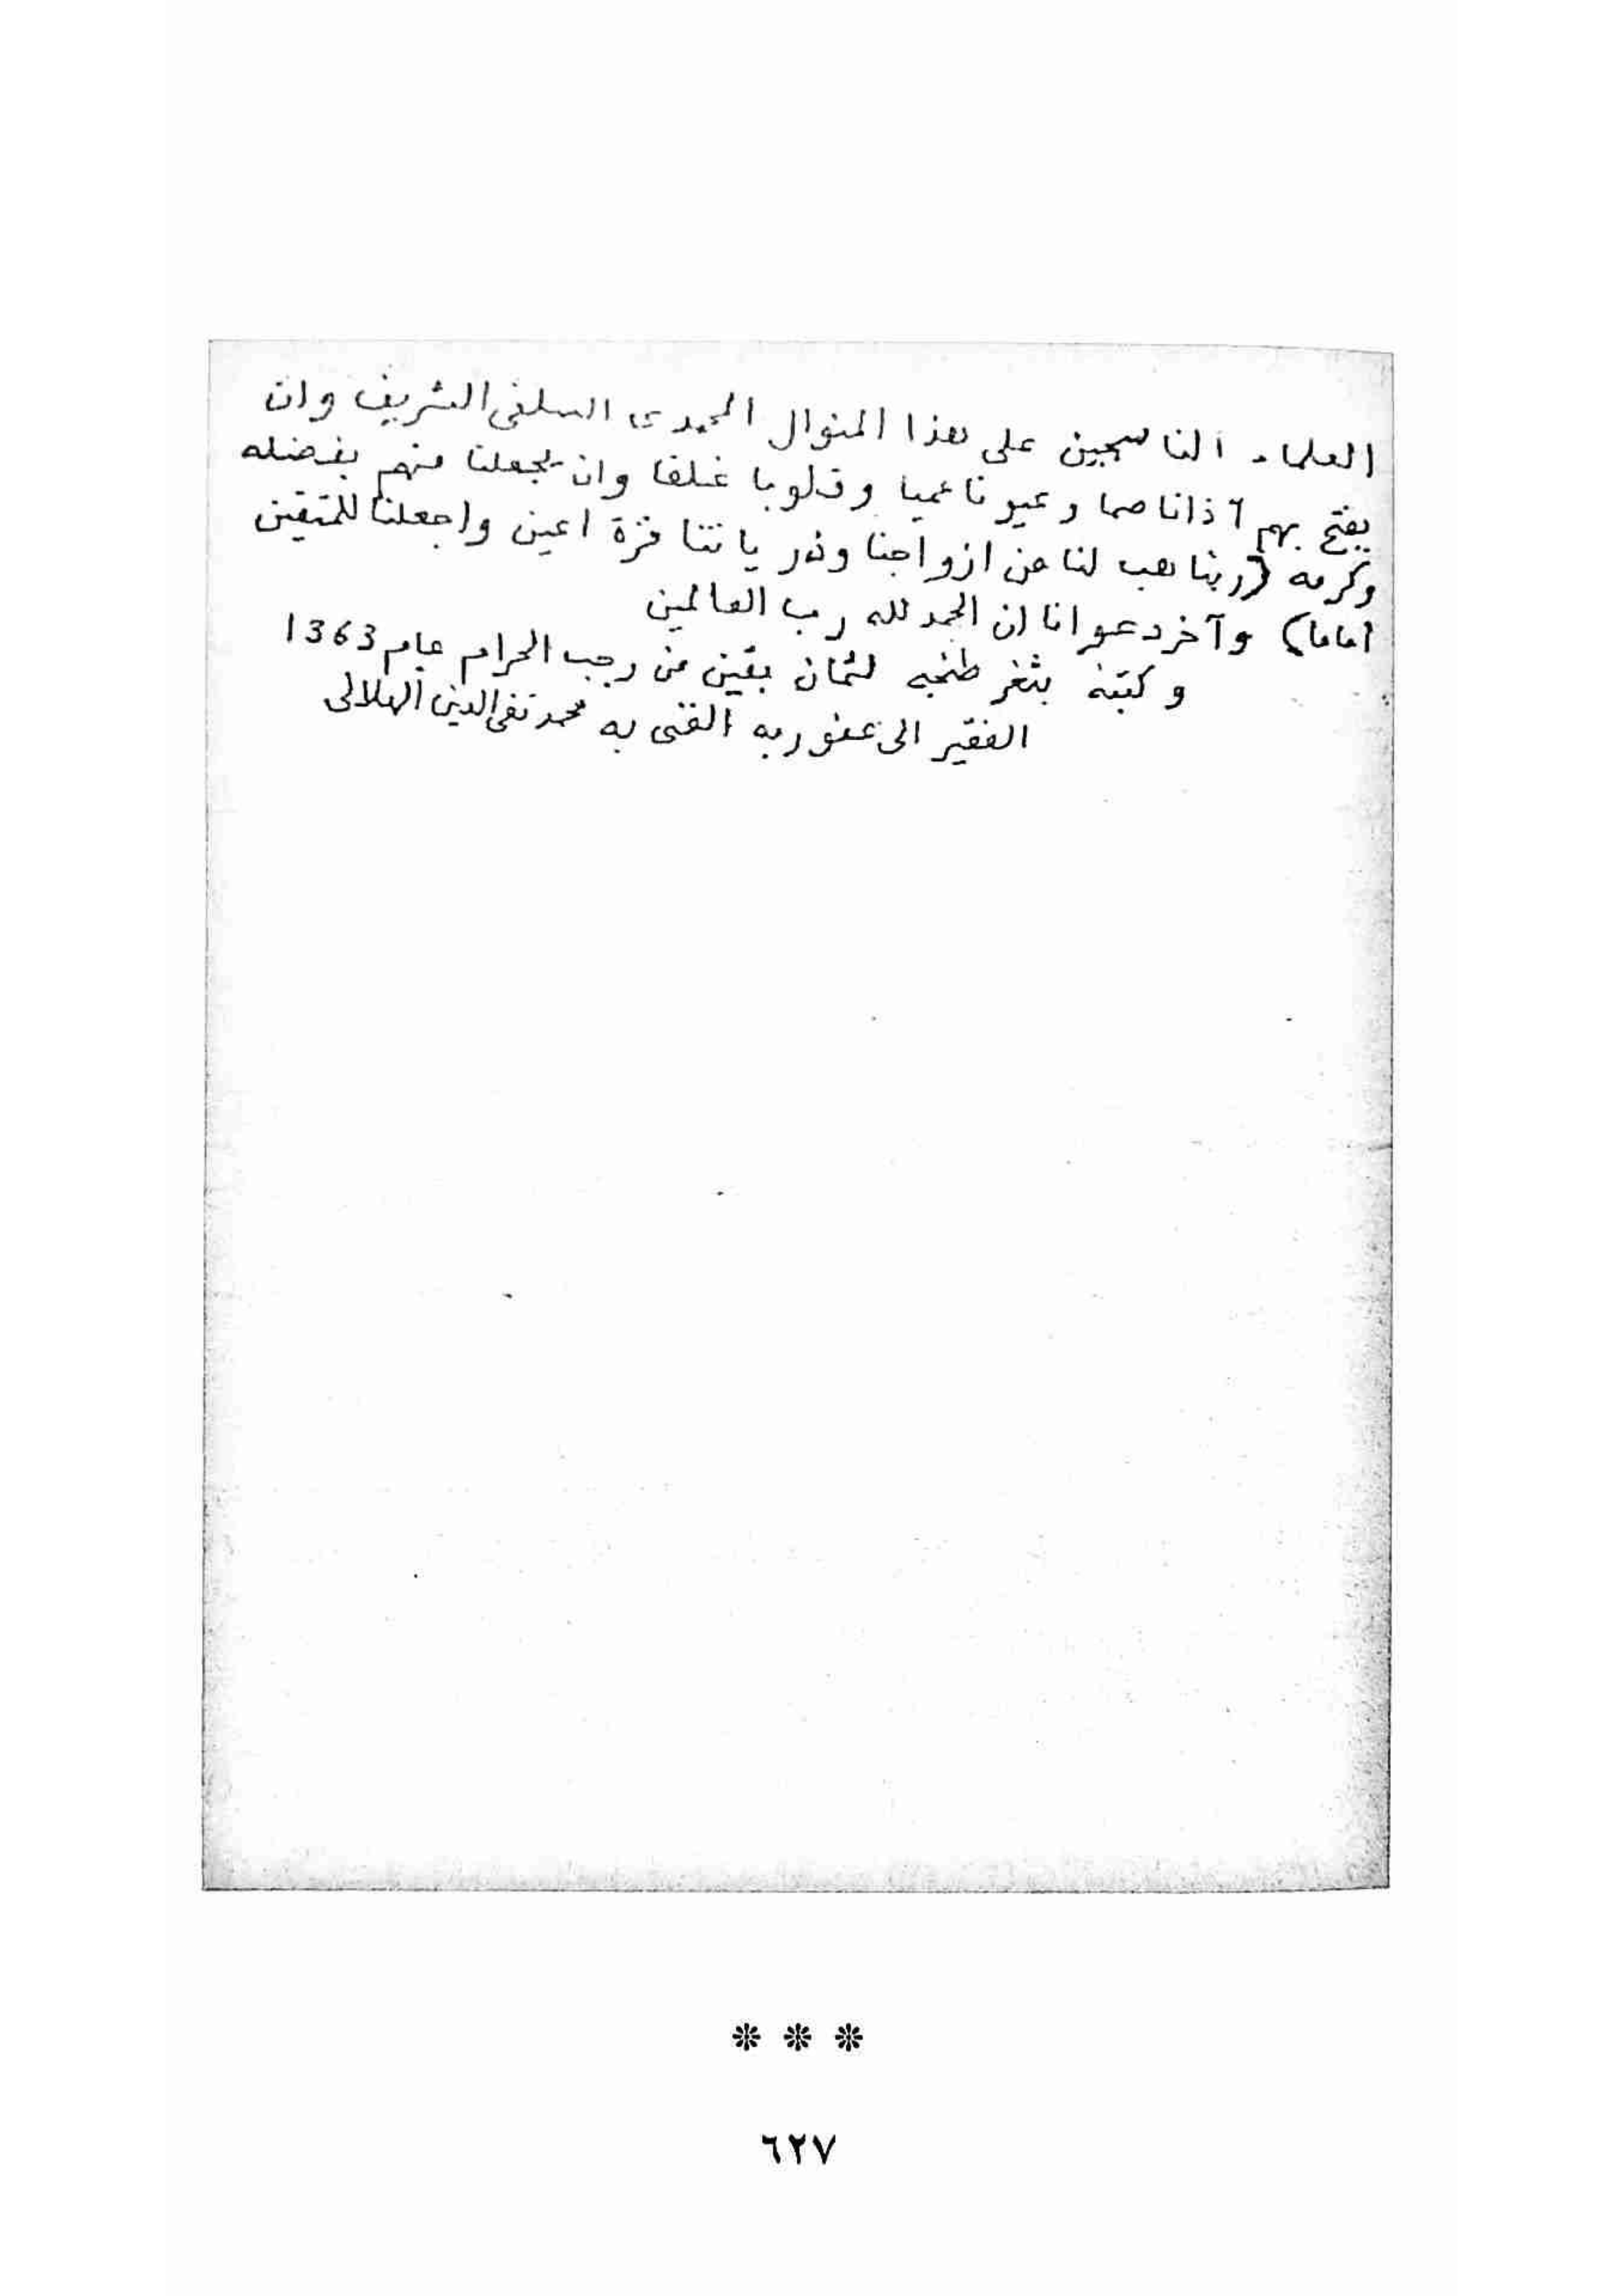 العلماء الناسجين على هذا المنوال المحمدى السلفى الشريف وان
يفتح بهم آذانا صما وعيونا عميا وقلوبا غلفا وان يجعلنا منهم بفضله
وكرمه (ربنا هب لنا من ازواجنا وذرياتنا قرة اعين واجعلنا للمتقين
اماما) وآخر دعوانا ان الحمد لله رب العالمين
وكتبه بثغر طنجه لثمان بقين من رجب الحرام عام 1363
الفقير الى عفو ربه الغنى به محمد تقى الدين الهلالى
* * *
٦٢٧